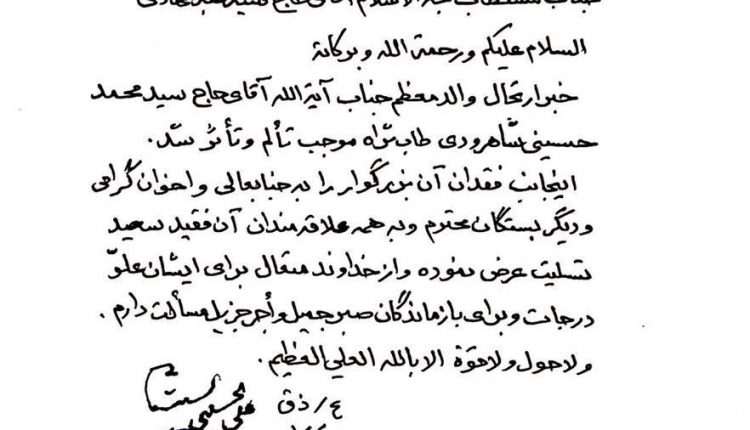 السلام علیکم ورحمة الله وبرکاتة
خبر ارتحال والد معظم جناب آیة الله آقای حاج سید محمد
حسینی شاهرودی طاب ثراه موجب تألم وتأثر شد.
اینجانب فقدان آن بزرگوار را به جنابعالی و اخوان گرامی
و دیگر بستگان محترم وبه همه علاقه مندان آن فقید سعید
تسلیت عرض نموده و از خداوند متعال برای ایشان علوّ
درجات و برای بازماندگان صبر جمیل و أجر جزیل مسألت دارم.
ولاحول ولاقوة الا بالله العلي العظیم.
٤/ ذق علی الحسینی